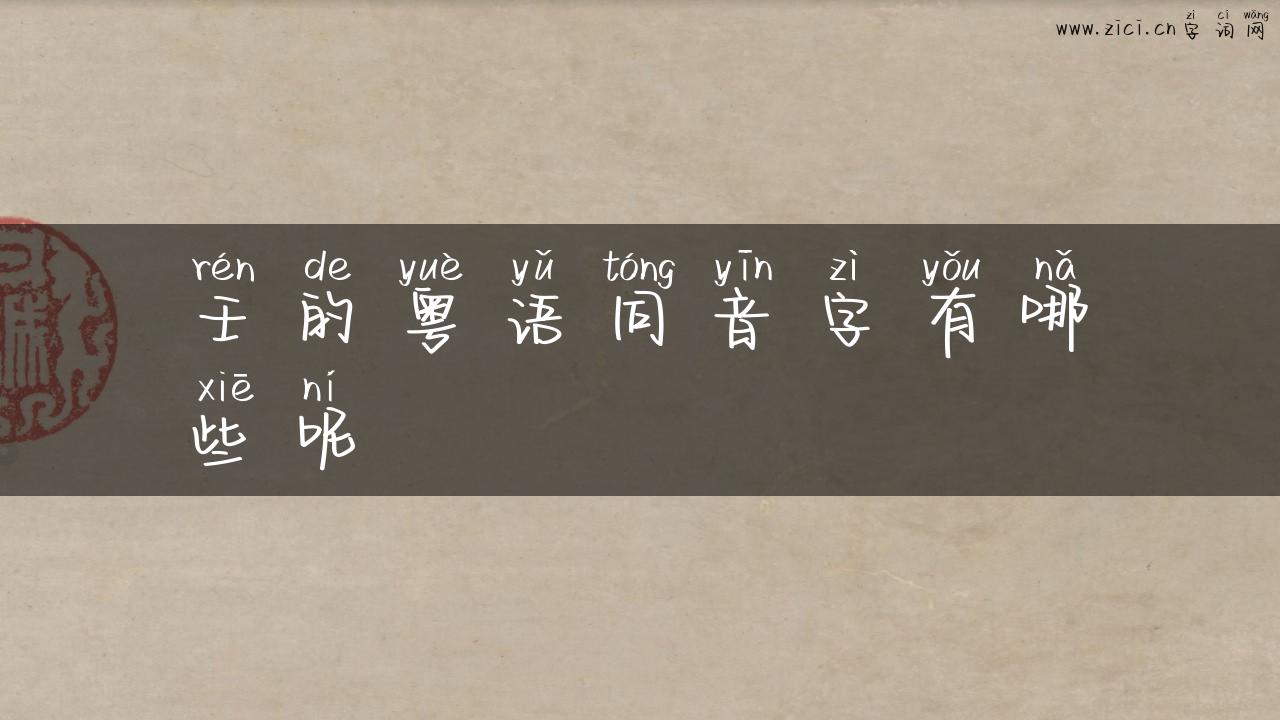 zì cí wǎng
www.zici.cn字词网
rén de yuè yǔ tóng yīn zì yǒu nǎ
壬的粤语同音字有哪
xiē ní
些呢